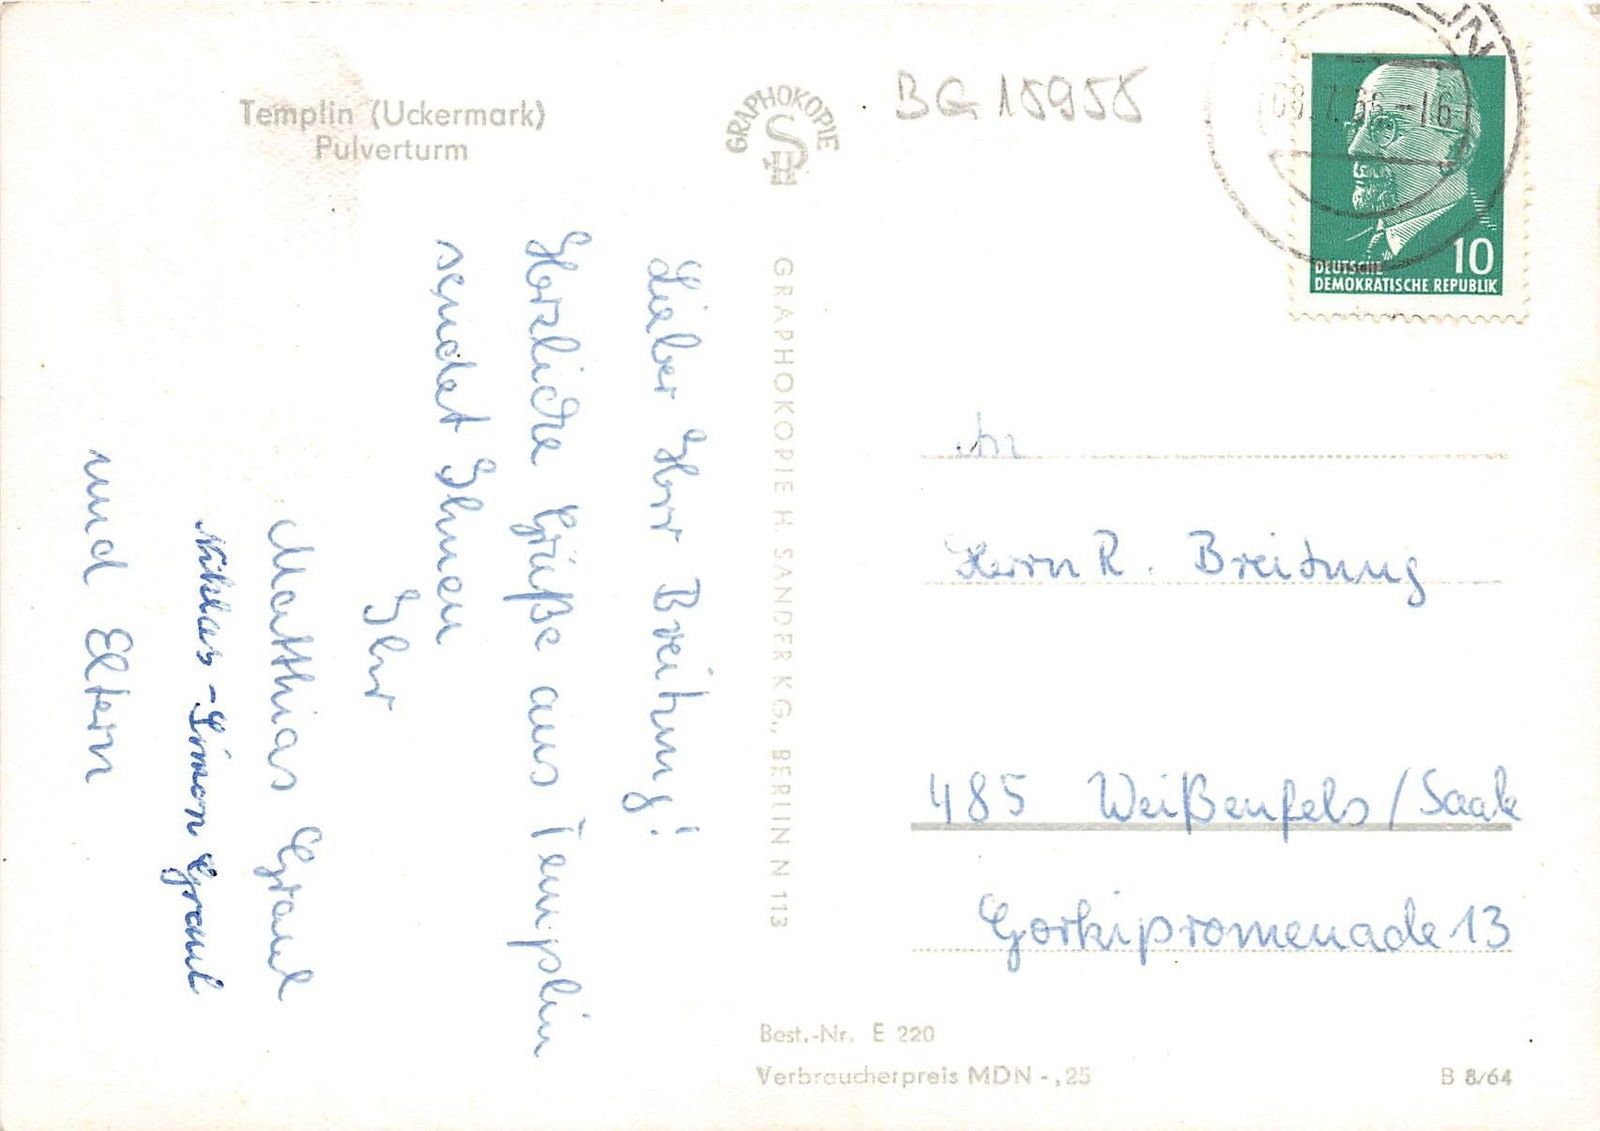 Templin (Uckermark)
Pulverturm
GRAPHOKOPIE
HS
BG 15955
08.7.66.-16
DEUTSCHE
DEMOKRATISCHE REPUBLIK
10
Lieber Herr Breitung!
Herzliche Grüße aus Templin
sendet Ihnen
Ihr
Matthias Graul
Niklas-Simon Graul
und Eltern
GRAPHOKOPIE H. SANDER KG., BERLIN N 113
An
Herrn R. Breitung
485 Weißenfels/Saale
Gorkipromenade 13
Best.-Nr. E 220
Verbraucherpreis MDN -,25
B 8/64